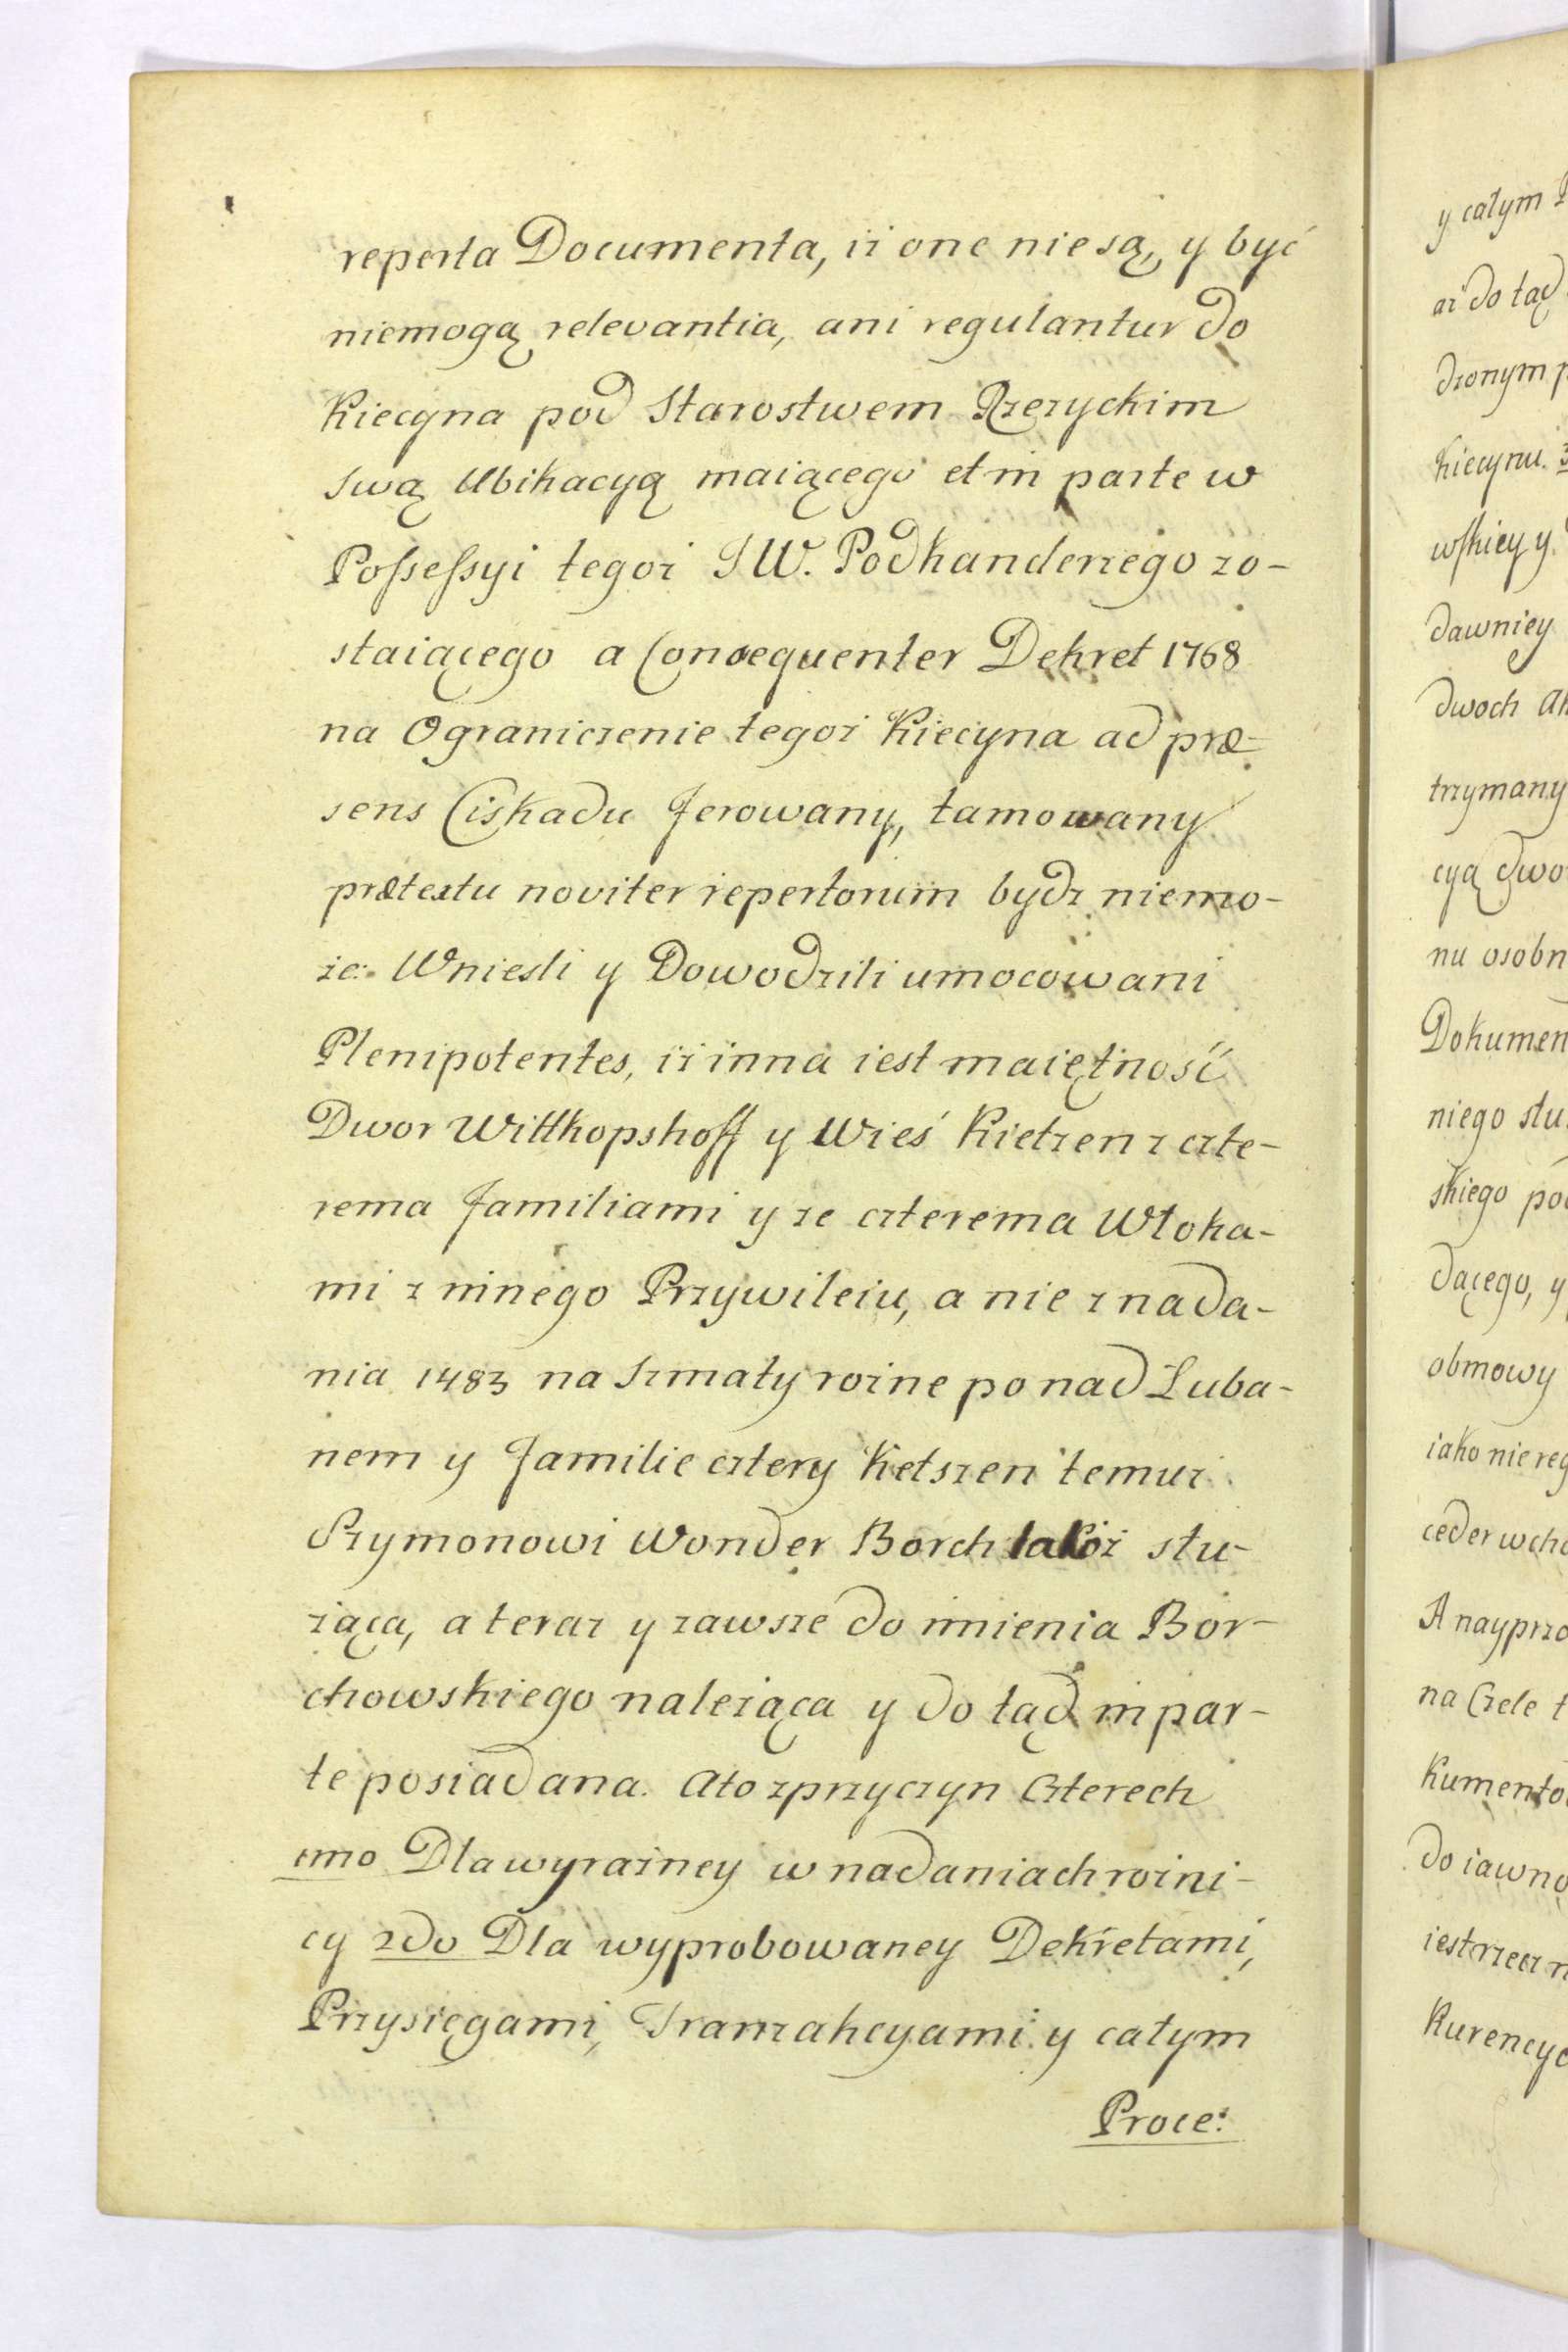 reperta Documenta, iż one nie są, y być
niemogą relevantia, ani regulantur do
Kiecyna pod Starostwem Rzeżyckim
swą Ubikacyą maiącego et in parte w
Possessyi tegoż JW. Podkanclerzego zo-
staiącego a Consequenter Dekret 1768
na Ograniczenie tegoż Kiecyna ad præ-
sens Ciskadu ferowany, tamowany
prætextu noviter repertorum bydz niemo-
że: Wniesli y Dowodzili umocowani
Plenipotentes, iż inna iest maiętność
Dwor Wittkopshoff y Wieś Kietzen z czte-
rema familiami y ze czterema Włoka-
mi z innego Przywileiu, a nie z nada-
nia 1483 na Szmaty rożne ponad Luba-
nem y familie cztery Ketszen temuż
Szymonowi Wonder Borch także słu-
żąca, a teraz y zawsze do imienia Bor-
chowskiego należąca y do tąd in par-
te posiadana. Ato zprzyczyn Czterech
1mo Dla wyraźney w nadaniach rożni-
cy 2do Dla wyprobowaney Dekretami,
Przysięgami, Tranzakcyami y całym
Proce:
y całym
aż do tąd
dzonym p
Kiecynu. 3
wskiey y
dawniey
dwoch
trzymany
cyą dwo
nu osobn
Dokumen
niego słu
skiego po
dącego, y
obmowy
iako nie reg
ceder wcho
A nayprzo
na Czele t
Kumento
do iawno
iest rzecz n
Kurencyo